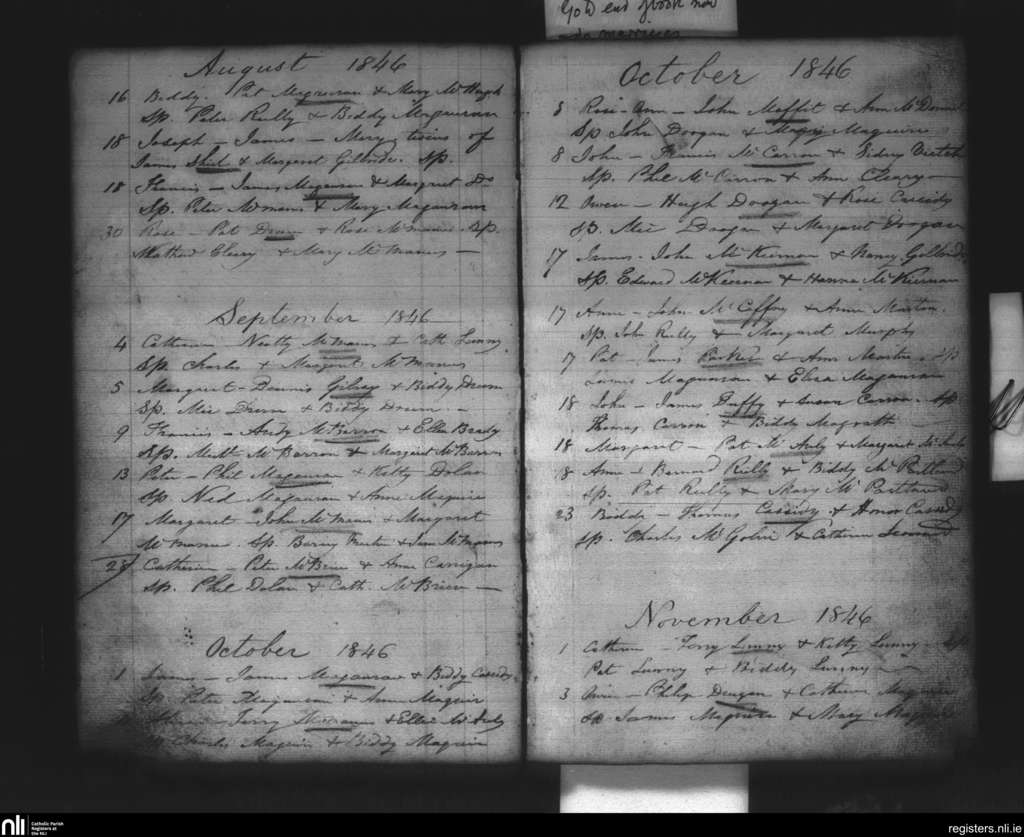 Gold end of book now
August 1846
16 Biddy. Pat Magauran & Mary McHugh
Sp. Peter Reilly & Biddy Magauran
18 Joseph - James - Mary twins of
James Shiel & Margaret Sp.
18 Francis - James Magauran & Margret Do
Sp. Peter McManus & Mary Magauran
30 Rose - Pat Drum & Rose McManus Sp.
Mathew Cleary & Mary McManus
September 1846
4 Catherine McManus & Cath Lunny
Sp Charles & Margaret McManus
5 Margaret - Dennis & Biddy Drum
Sp. Mic Drum & Biddy Drum
9 Francis - Andy McBarron & Ellen Brady
Sp. Matt McBarron & Margaret McBarron
13 Peter - Phil Magauran & Kitty Dolan
Sp Ned Magauran & Anne Maguire
17 Margaret - John McManus & Margaret
McManus. Sp. Barny & McManus
28 Catherine - Peter McBrien & Anne Corrigan
Sp. Phil Dolan & Cath. McBrien
October 1846
1 James - James Magauran & Biddy Cassidy
Sp. Peter Magauran & Anne Maguire
Terry & Ellen McAuly
Charles Maguire & Biddy Maguire
October 1846
5 Rose-Ann - John Moffit & Ann McDonnel
Sp John Doogan & Maguire
8 John - Francis McCarron & Bidney Veitch
Sp. Phil McCarron & Ann Cleary
12 Owen - Hugh Doogan & Rose Cassidy
Sp. Mic Doogan & Margaret Doogan
17 James - John McKiernan & Nancy
Sp. Edward McKiernan & Hanna McKiernan
17 Anne - John McCaffry & Anne Martin
Sp. John Reilly & Margaret Murphy
17 Pat - James & Ann Martin. Sp
James Magauran & Eliza Magauran
18 John - James Duffy & Susan Carron. Sp
Thomas Carron & Biddy Magrath
18 Margaret - Pat McAuly & Margaret
18 Anne - Bernard Reilly & Biddy McPartland
Sp. Pat Reilly & Mary McPartland
23 Biddy - Thomas Cassidy & Honor Cassidy
Sp. Charles & Catherine Leonard
November 1846
1 Catherine - Terry Lunny & Kitty Lunny - Sp
Pat Lunny & Biddy Lunny
3 Owen - Philip & Catherine Maguire
Sp. James Maguire & Mary
nli
Catholic Parish
Registers at
the NLI
registers.nli.ie